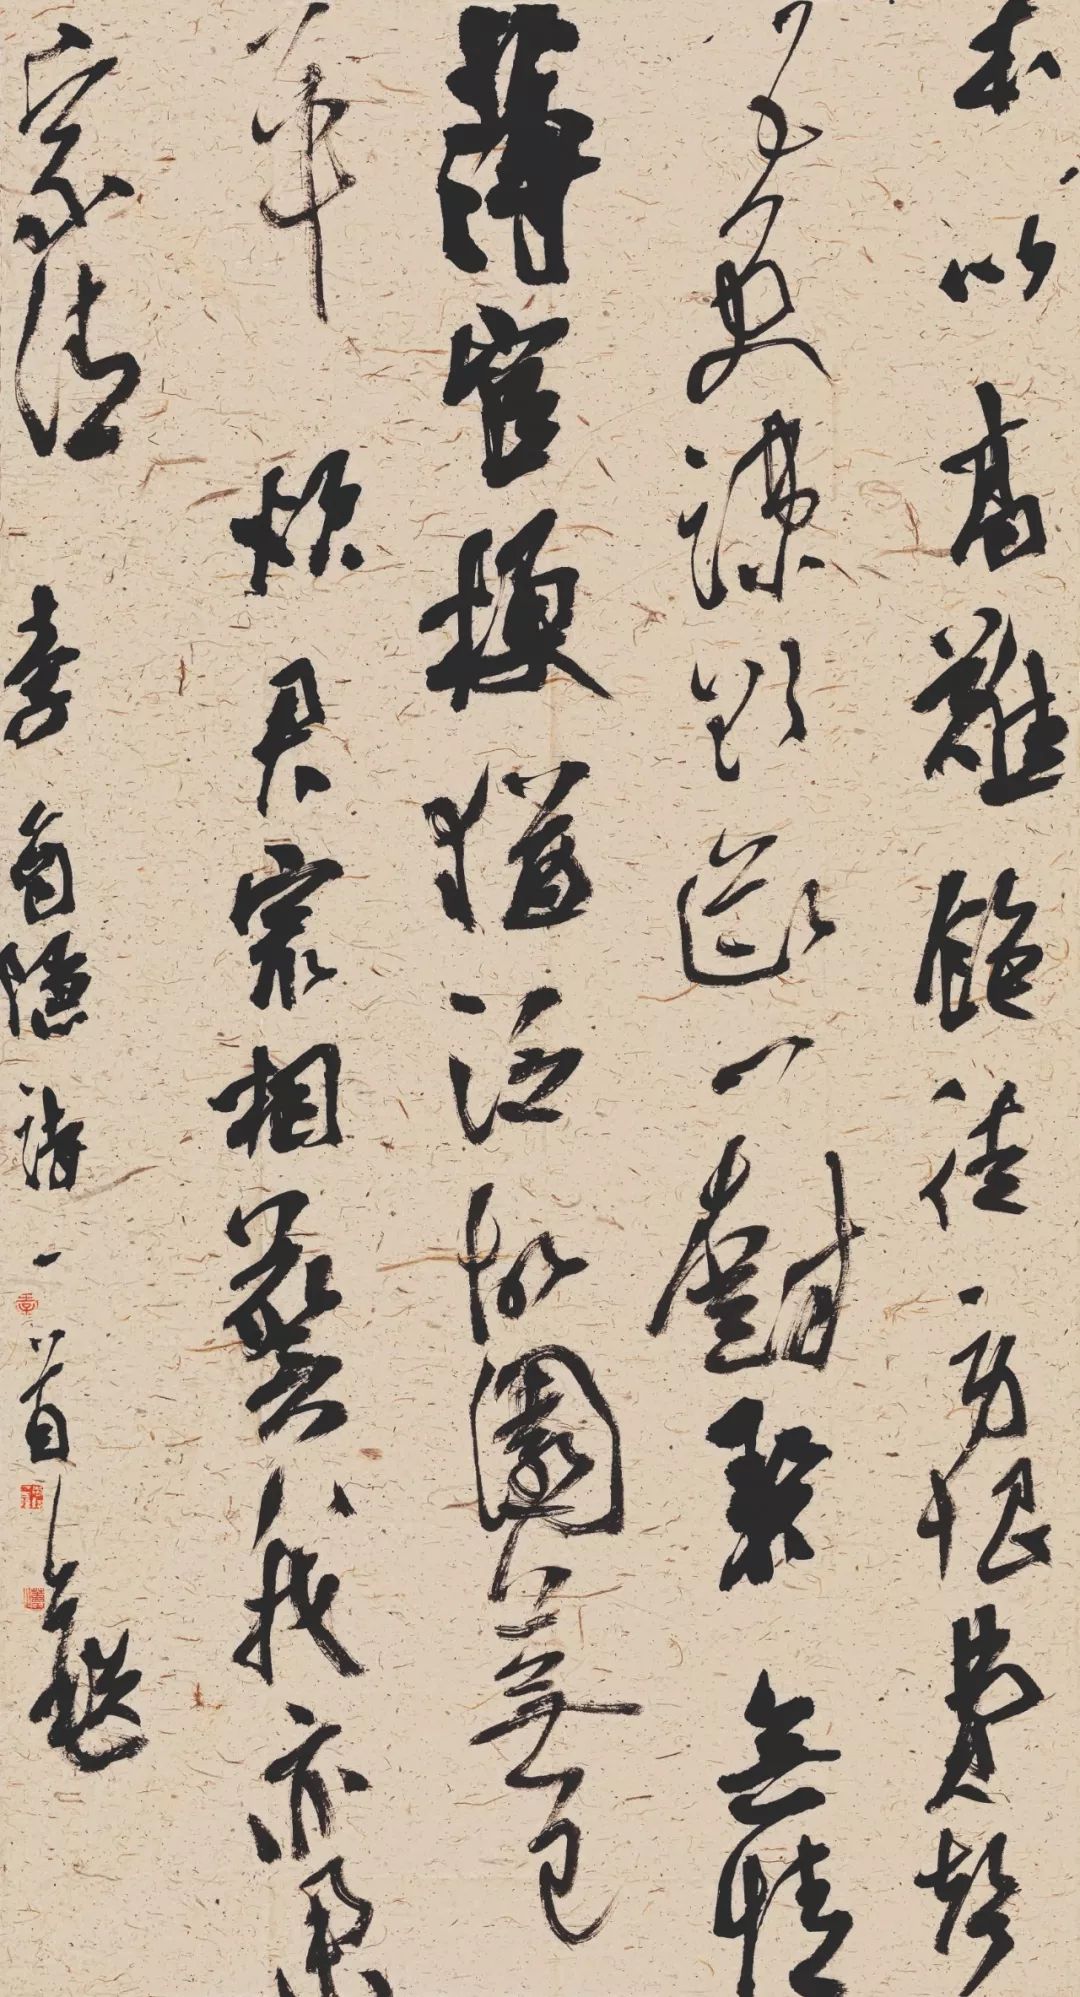 本以高難飽徒勞恨費聲
五更踈欲斷一樹碧無情
薄宦梗猶泛故園蕪已
平煩君最相警我亦舉
家清 李商隱詩一首